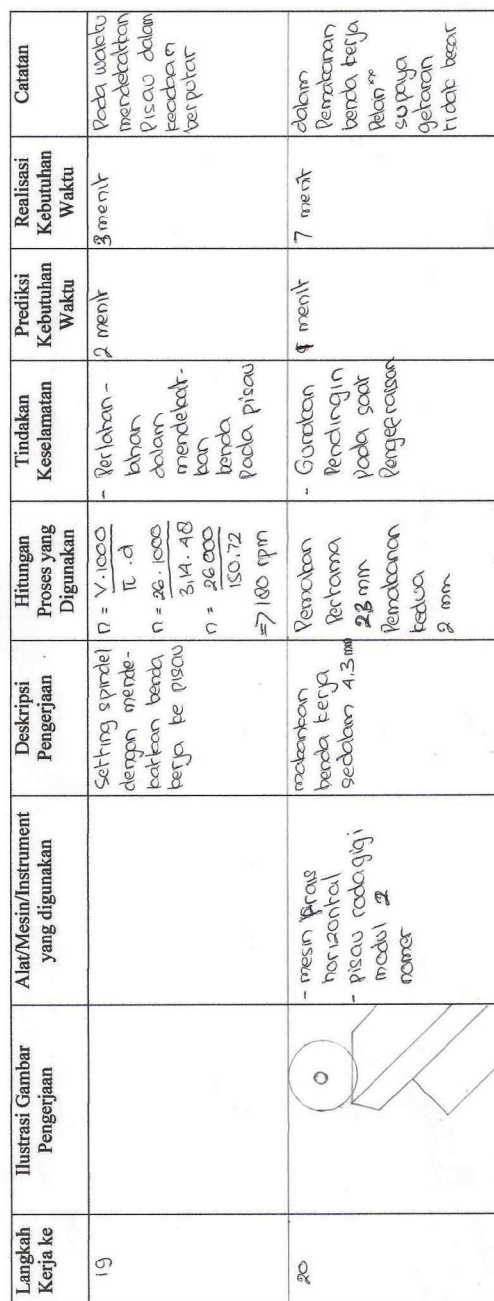 Langkah
Kerja ke
Ilustrasi Gambar
Pengerjaan
Alat/Mesin/Instrument
yang digunakan
Deskripsi
Pengerjaan
Hitungan
Proses yang
Digunakan
Tindakan
Keselamatan
Prediksi
Kebutuhan
Waktu
Realisasi
Kebutuhan
Waktu
Catatan
19
Setting spindel
dengan mende-
katkan benda
kerja ke pisau
n = V.1000
π.d
n = 26.1000
3,14.48
n = 26000
150.72
=> 180 rpm
- Perlahan-
lahan
dalam
mendekat-
kan
benda
pada pisau
2 menit
3 menit
Pada waktu
mendekatkan
pisau dalam
keadaan
berputar
20
- mesin frais
horizontal
- pisau rodagigi
modul 2
nomer
makankan
benda kerja
sedalam 4.3 mm
Pemakan
Pertama
23 mm
Pemakanan
kedua
2 mm
- Gunakan
Pendingin
pada saat
Pengefraisan
menit
7 menit
dalam
Pemakanan
benda kerja
Pelan²
supaya
getaran
tidak besar